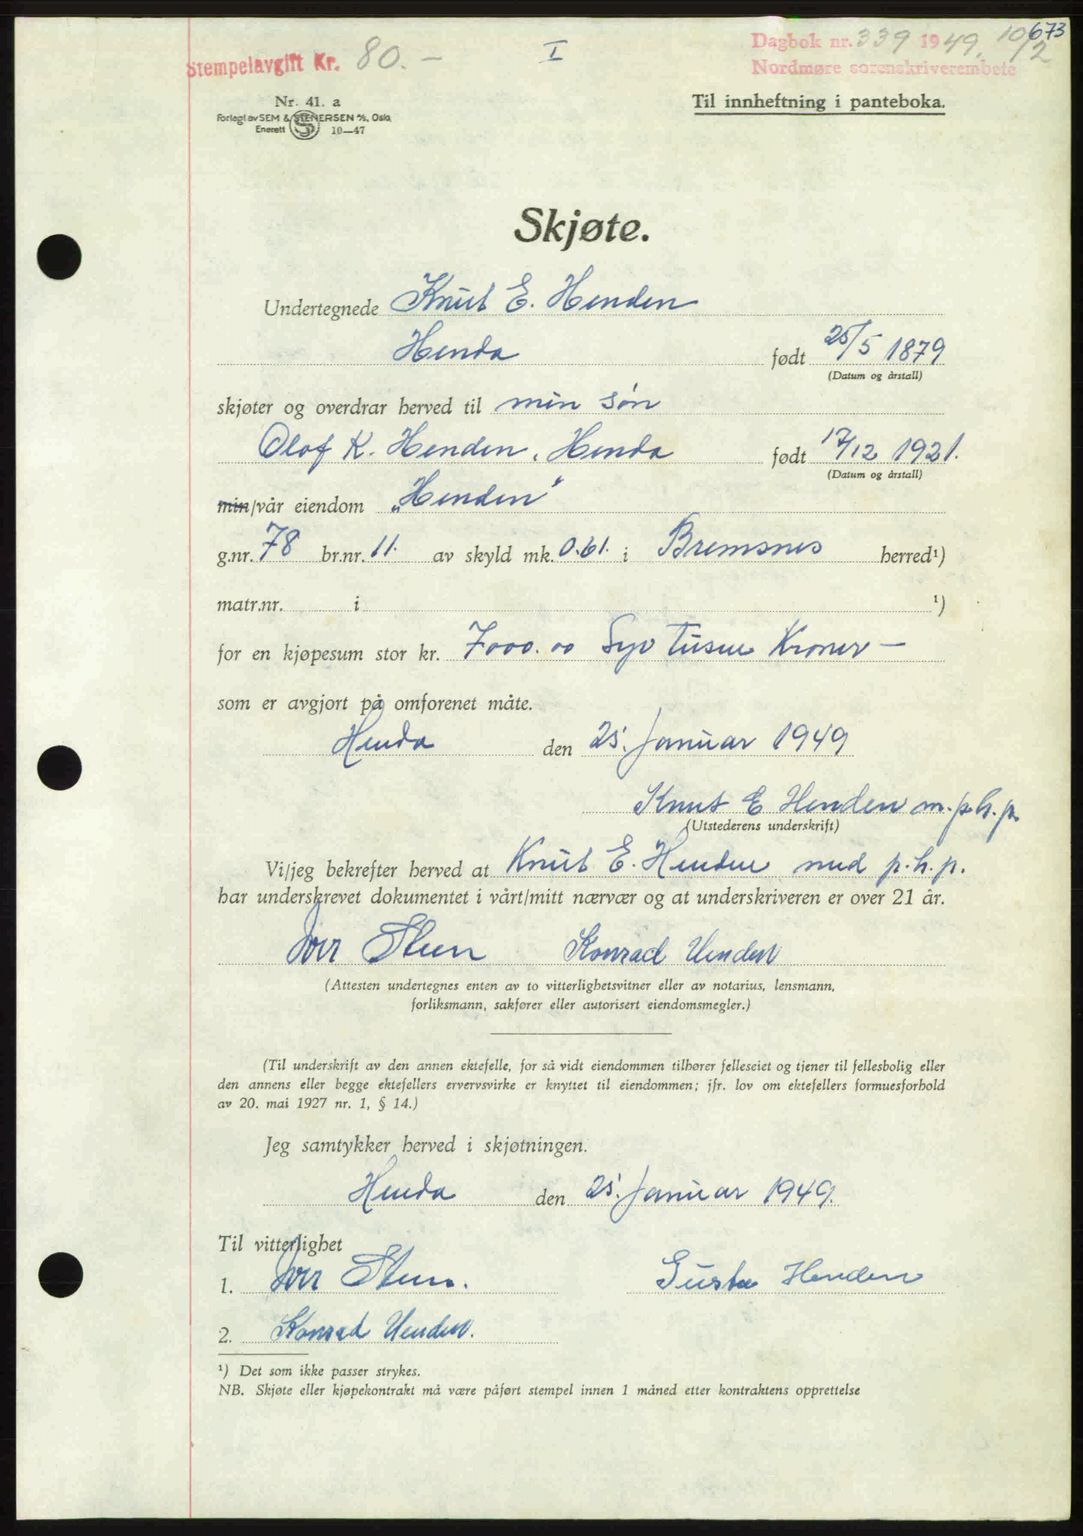 673
Stempelavgift Kr. 80.-
I
Dagbok nr. 339 1949. 10/2
Nordmøre sorenskriverembete
Nr. 41. a
Forlagt av SEM & STENERSEN A/S, Oslo,
Enerett 10—47
Til innheftning i panteboka.
Skjøte.
Undertegnede Knut E. Henden
Henda født 25/5 1879
(Datum og årstall)
skjøter og overdrar herved til min søn
Olaf K. Henden, Henda født 17/12 1921.
(Datum og årstall)
min/vår eiendom „Henden"
g.nr. 78 br.nr. 11. av skyld mk. 0.61. i Bremsnes herred¹)
matr.nr. i ¹)
for en kjøpesum stor kr. 7000.00 Syv tusen Kroner —
som er avgjort på omforenet måte.
Henda den 25. Januar 1949
Knut E Henden m.p.h.p.
(Utstederens underskrift)
Vi/jeg bekrefter herved at Knut E. Henden med p.h.p.
har underskrevet dokumentet i vårt/mitt nærvær og at underskriveren er over 21 år.
Konrad Henden
(Attesten undertegnes enten av to vitterlighetsvitner eller av notarius, lensmann,
forliksmann, sakfører eller autorisert eiendomsmegler.)
(Til underskrift av den annen ektefelle, for så vidt eiendommen tilhører felleseiet og tjener til fellesbolig eller
den annens eller begge ektefellers ervervsvirke er knyttet til eiendommen; jfr. lov om ektefellers formuesforhold
av 20. mai 1927 nr. 1, § 14.)
Jeg samtykker herved i skjøtningen.
Henda den 25. Januar 1949.
Til vitterlighet
1. Gusta Henden
2. Konrad Henden.
¹) Det som ikke passer strykes.
NB. Skjøte eller kjøpekontrakt må være påført stempel innen 1 måned etter kontraktens opprettelse